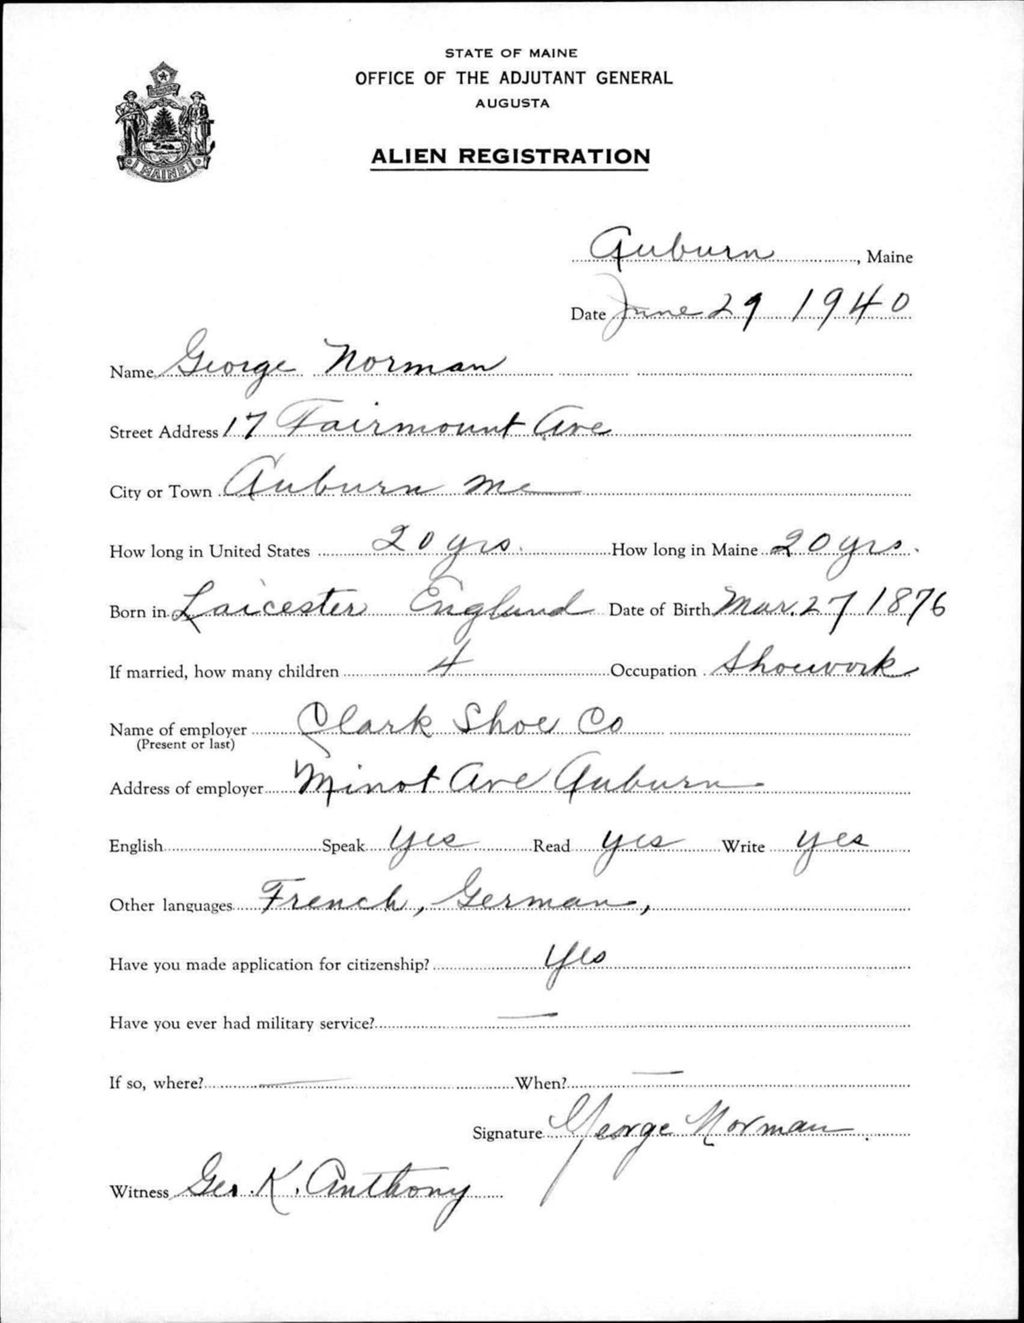 STATE OF MAINE
OFFICE OF THE ADJUTANT GENERAL
AUGUSTA
ALIEN REGISTRATION
MAINE
Auburn, Maine
Date June 29 1940
Name George Norman
Street Address 17 Fairmount Ave
City or Town Auburn Me
How long in United States 20 yrs. How long in Maine 20 yrs.
Born in Laicester England Date of Birth Mar. 27 1876
If married, how many children 4 Occupation Shoework
Name of employer Clark Shoe Co
(Present or last)
Address of employer Minot Ave Auburn
English Speak Yes Read Yes Write Yes
Other languages French, German,
Have you made application for citizenship? Yes
Have you ever had military service? —
If so, where? — When? —
Signature George Norman
Witness Geo. K. Anthony